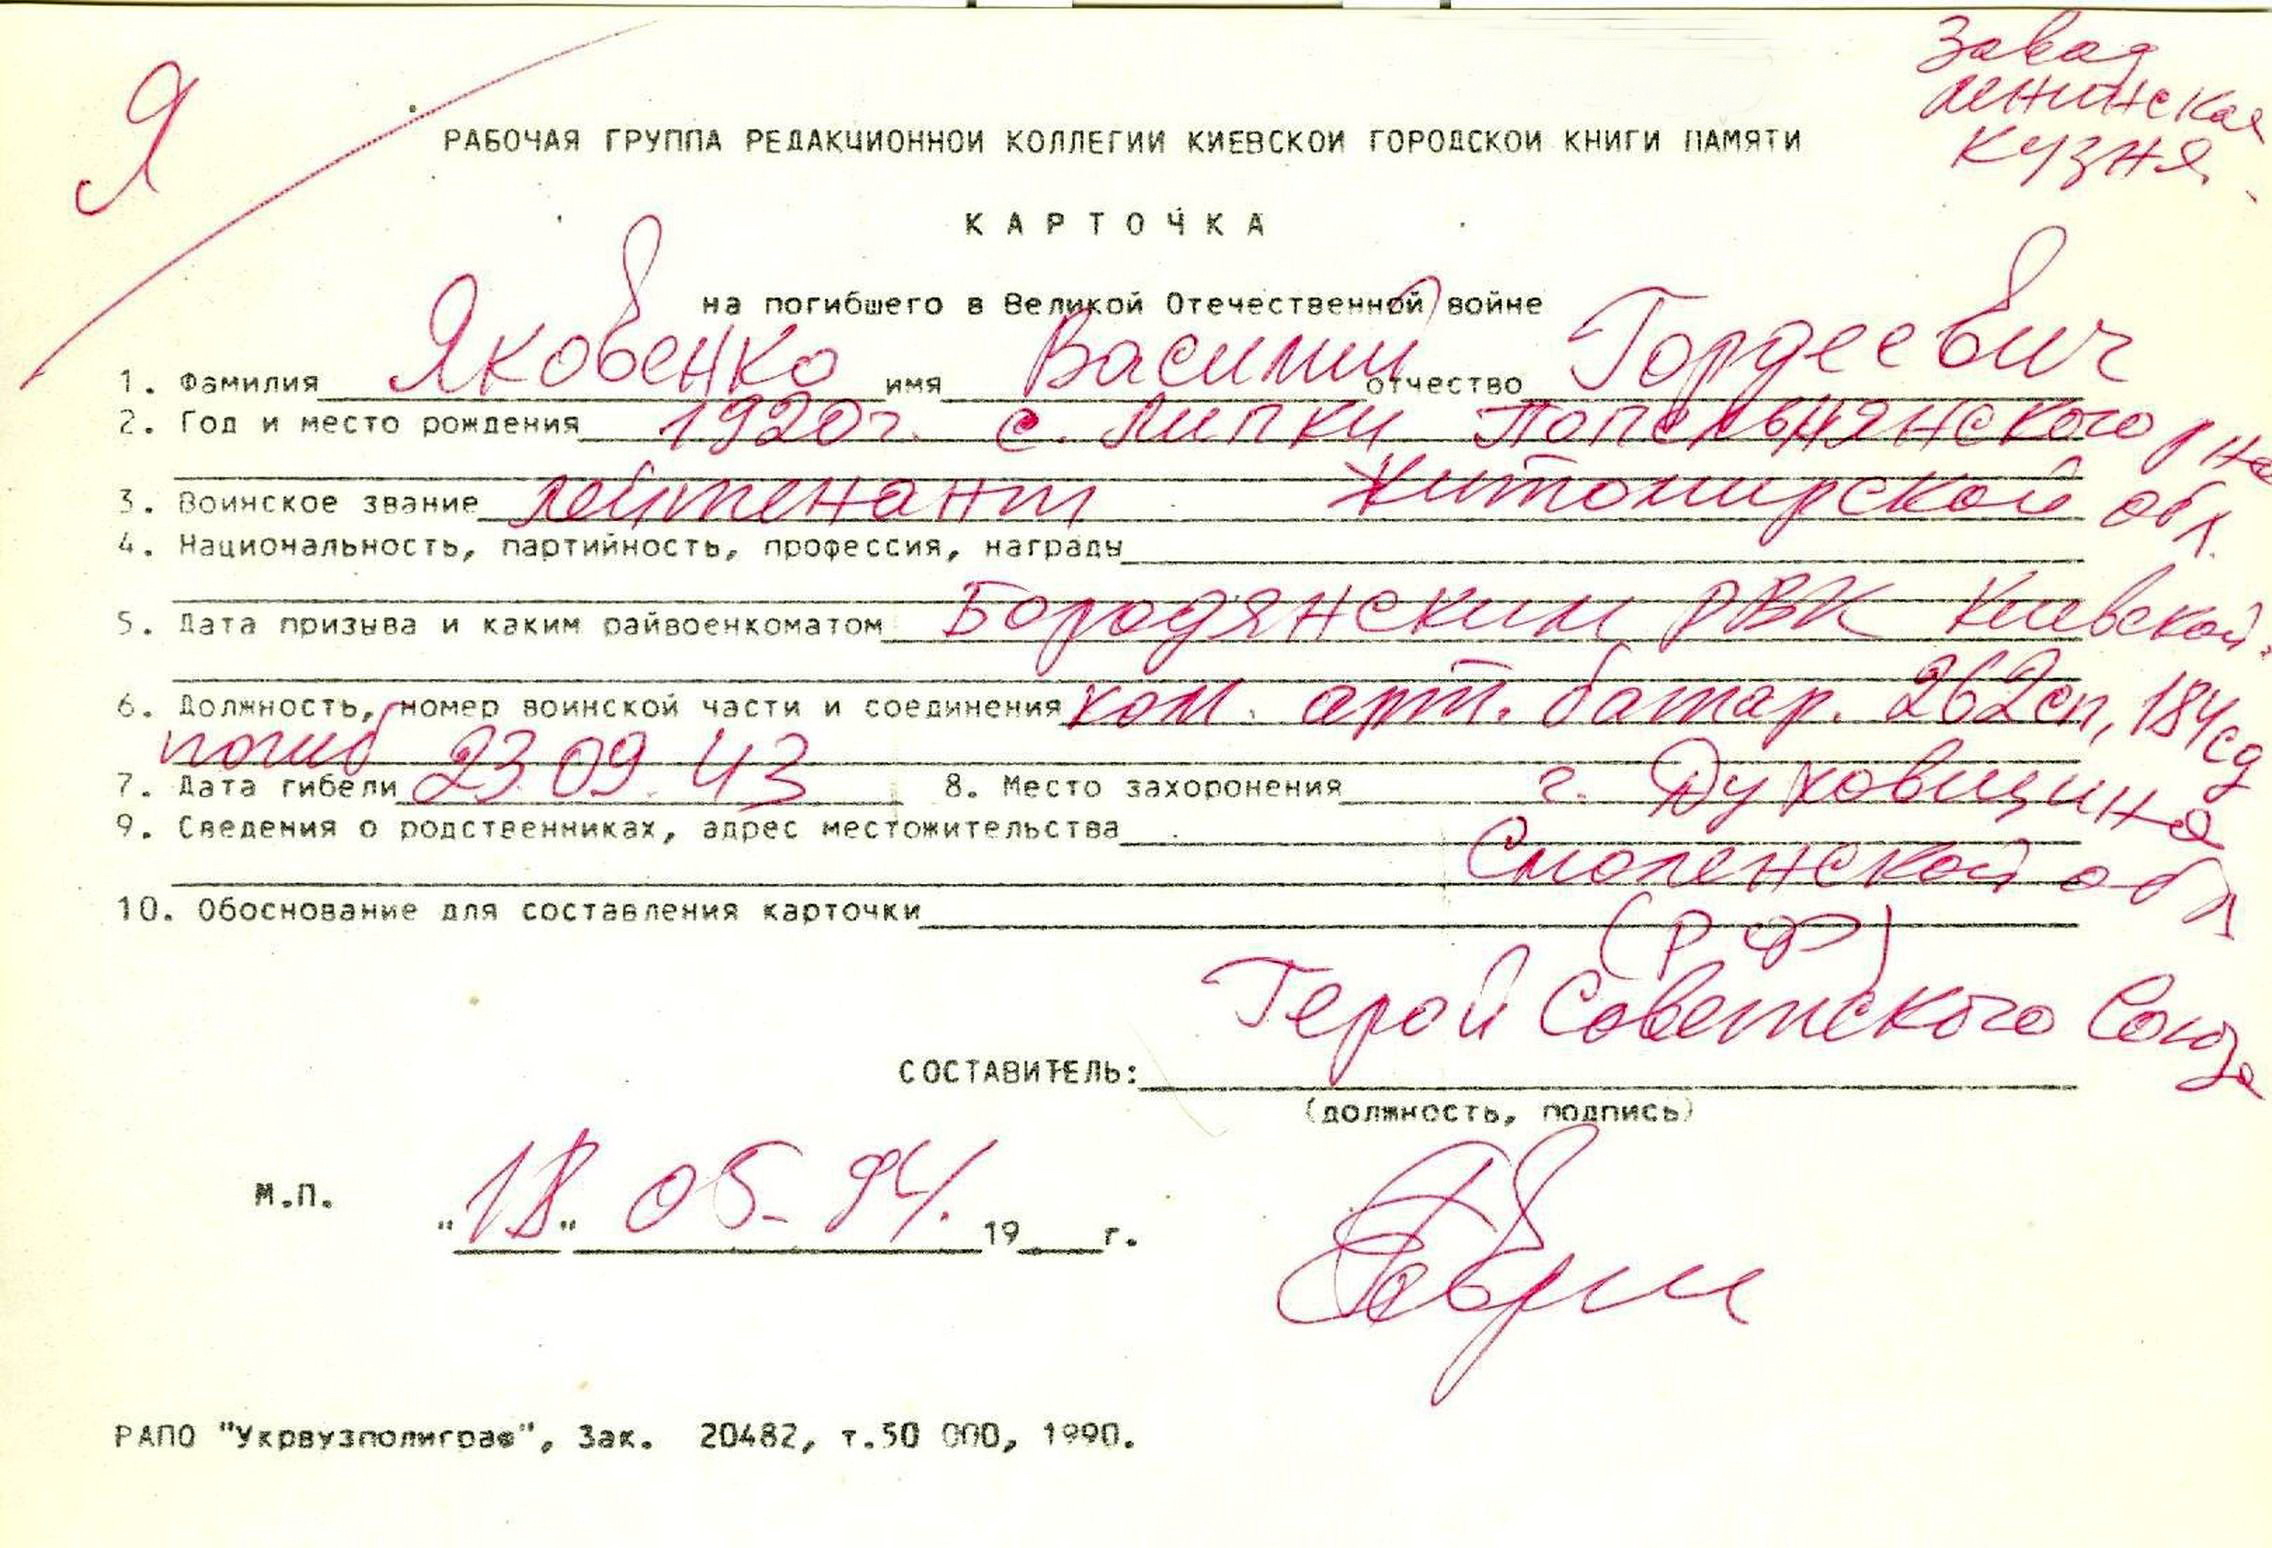 Я
Завод
Ленинская
Кузня
РАБОЧАЯ ГРУППА РЕДАКЦИОННОЙ КОЛЛЕГИИ КИЕВСКОЙ ГОРОДСКОЙ КНИГИ ПАМЯТИ
КАРТОЧКА
на погибшего в Великой Отечественной войне
1. Фамилия Яковенко имя Василий отчество Гордеевич
2. Год и место рождения 1920 г. с. Липки Попельнянского р-на
3. Воинское звание лейтенант Житомирской обл.
4. Национальность, партийность, профессия, награды
5. Дата призыва и каким райвоенкоматом Бородянским РВК Киевской
6. Должность, номер воинской части и соединения ком. арт. батар. 262сп, 184сд
погиб
7. Дата гибели 23.09.43 8. Место захоронения г. Духовщина
9. Сведения о родственниках, адрес местожительства
Смоленской обл
10. Обоснование для составления карточки
(РФ)
Герой Советского Союза
СОСТАВИТЕЛЬ:
(должность, подпись)
М.П.
"18" 05. 94. 19 г.
РАПО "Укрвузполиграф", Зак. 20482, т.50 000, 1990.